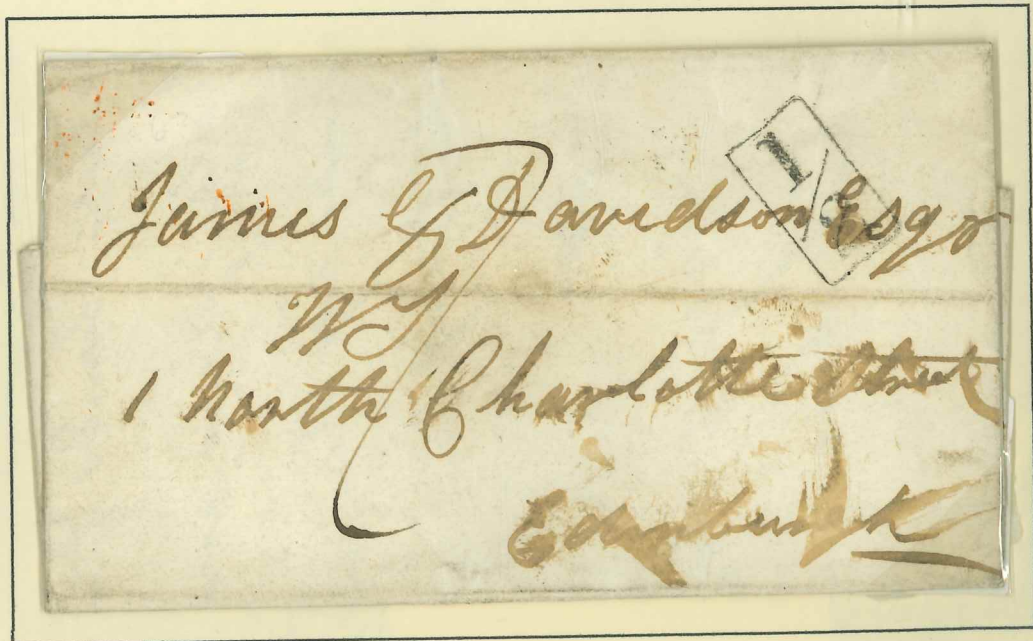 James G Davidson Esqr
WS
1 North Charlotte Street
Edinburgh
1/2